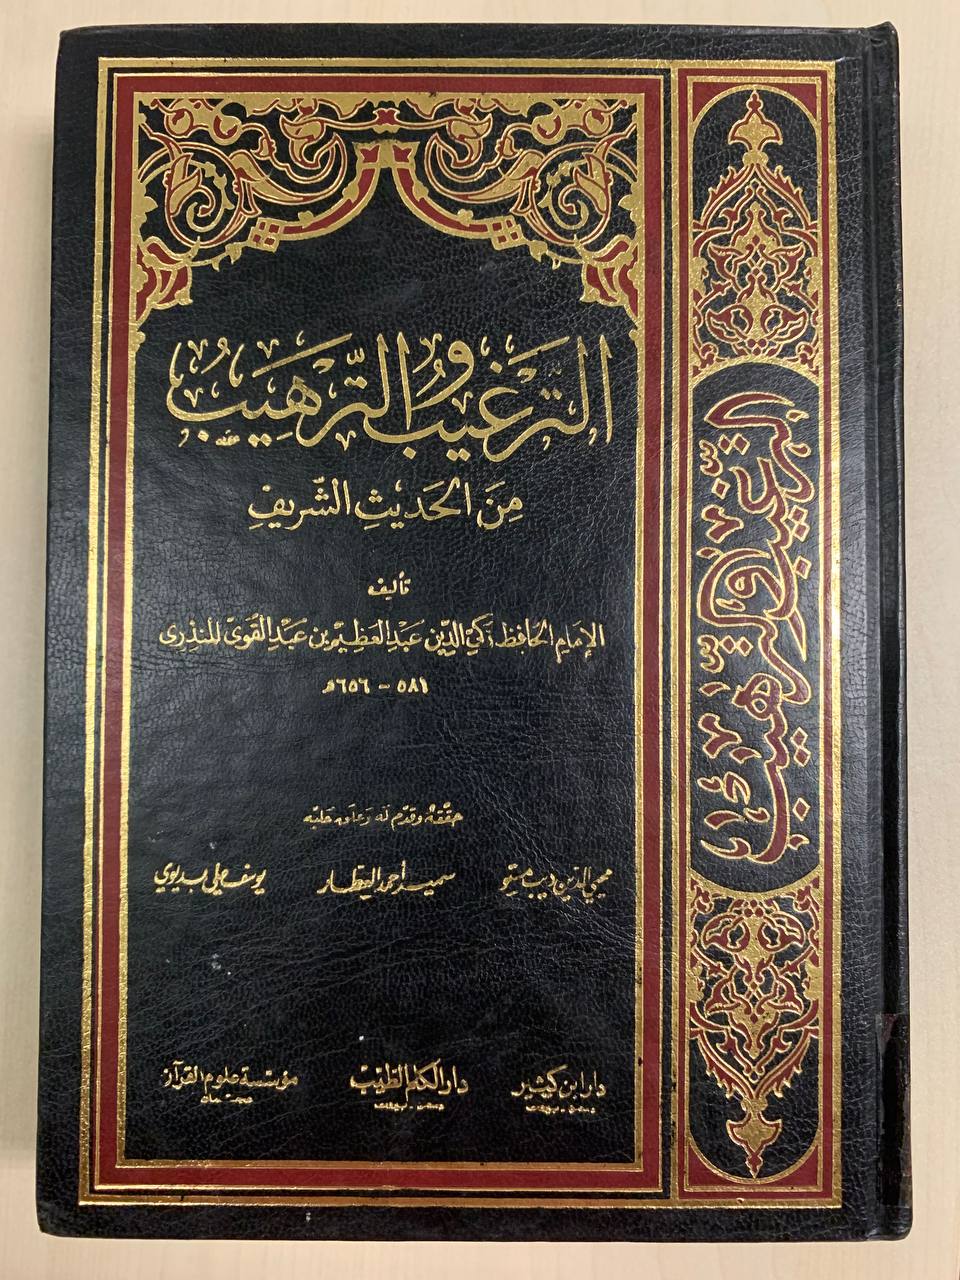 الترَّغيبُ والترَّهيَبُ
مِنَ الحَديثِ الشّريفِ
تأليف
الإمَام الحَافِظ زكيّ الدِّين عَبْد العَظيْم بن عَبْد القَويّ المنذِري
٥٨١ - ٦٥٦هـ
حقّقهُ وَقدّم لَه وَعلّق عَليْه
محيي الدّين ديب مستو
سميرأحمد العَطّار
يوسف علي بديوي
دار ابن كثير
دمشق - بيروت
دار الكلم الطّيّب
دمشق - بيروت
مؤسّسة علوم القرآن
عجمان
الترَّغيب والترّهيب